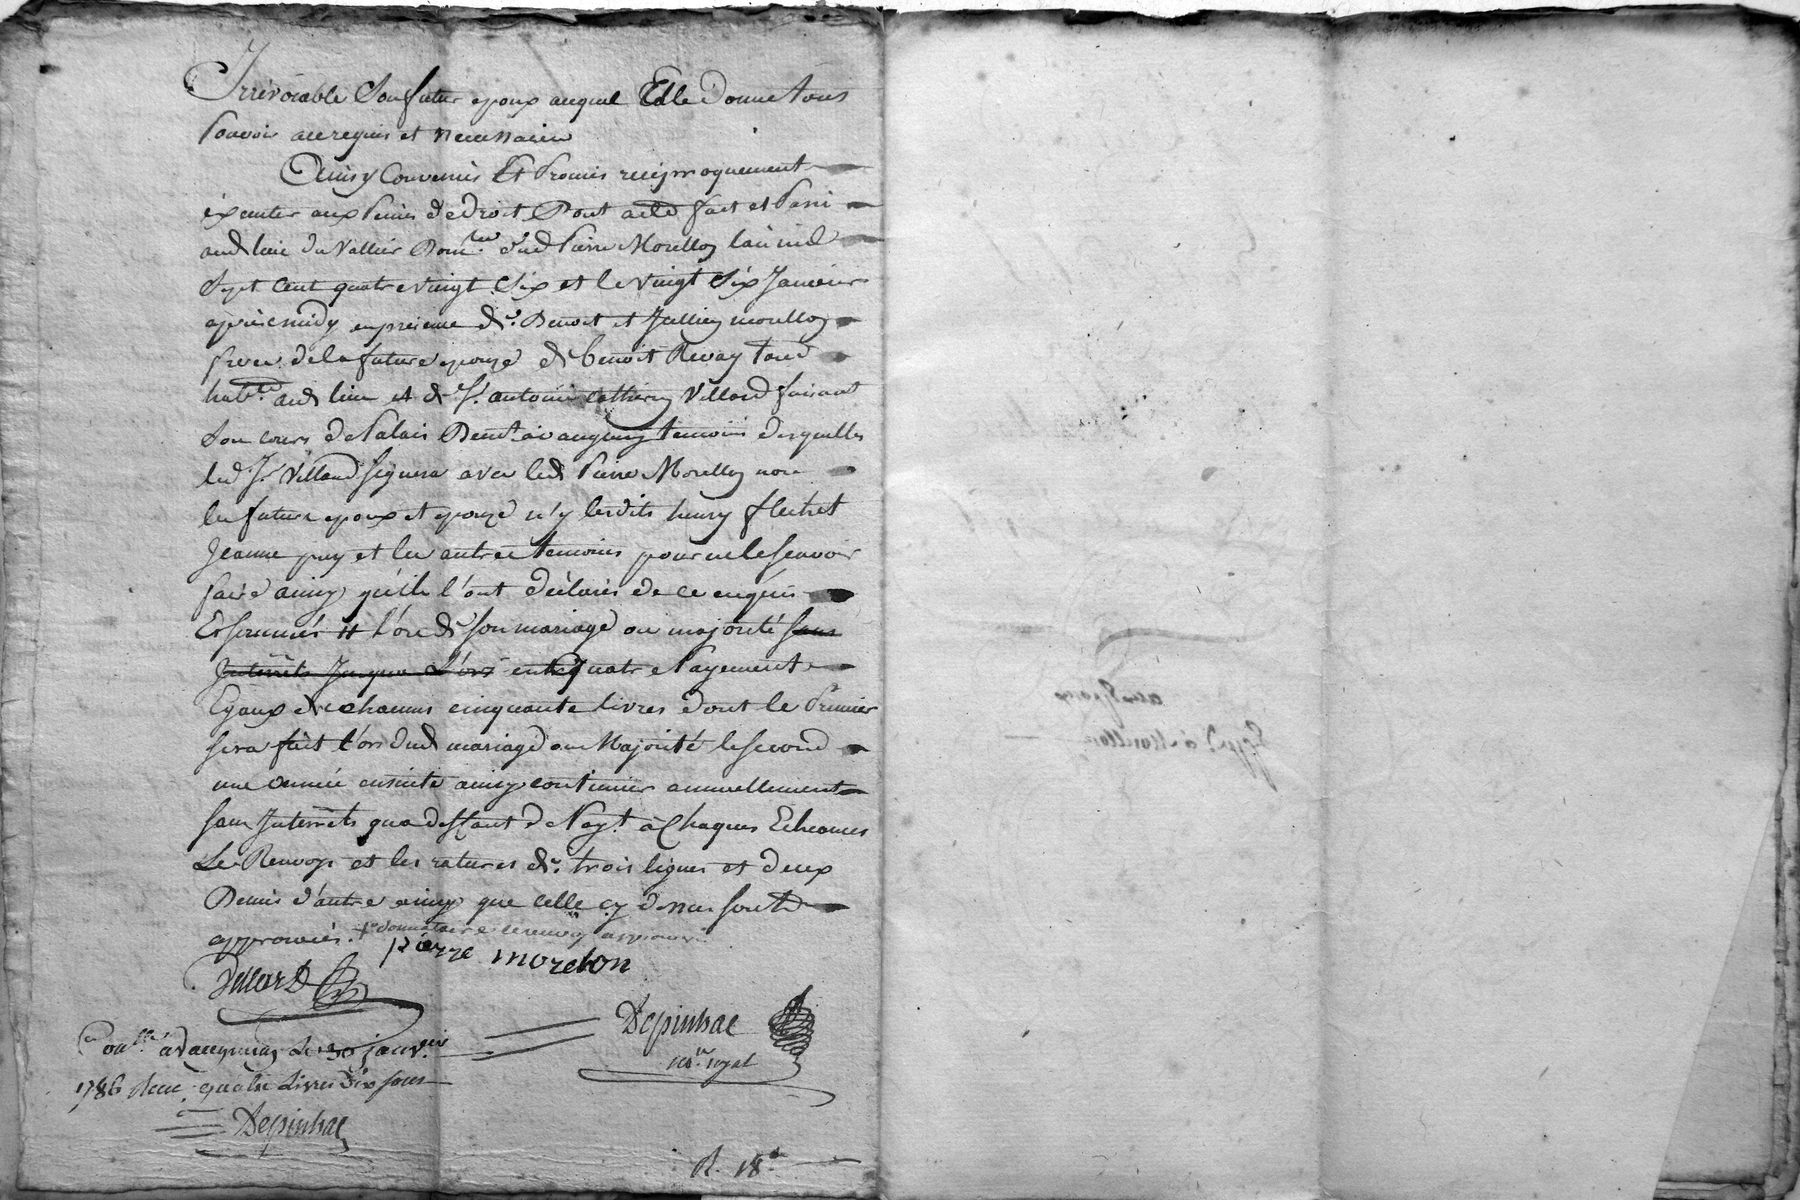 Irrévocable Son futur epoux auquel Elle donne tous
Pouvoir au requis et necessaire
Ainsy Convenûs Et Promis reciproquement
éxecuter aux Peines de droit Dont acte fait et Passé
aud. lieu du Vallier Dom.lle dud Pierre Morellon
Sept Cent quatre vingt Six et le vingt Six Janvier
après midy en presence de. Benoit et Jullien morellon
frere de la future epouze de benoit Revay tous
habt. aud. lieu et de Sr. antoine Catherin Villard faisant
Son cours de Palais Demt. a vaugneray temoins desquelles
led Sr Villard signera avec led Pierre Morellon non
les futurs epoux et epouze n'y lesdits henry flechet
Jeanne puy et les autres temoins pour ne le sçavoir
faire ainsy qu'ils l'ont déclarés de ce enquis
Et sommés # l'ors de son mariage ou majorité sans
Interêts Jusques L'ors en quatre Payements
Egaux de chacuns cinquante livres dont le Premier
sera fait l'ors dud mariage ou Majorité le second
une année ensuite ainsy continuer annuellement
sans Interrêts qu'a deffaut de Payt. à Chaques Echeances
Le Renvoye et les ratures de. trois lignes et deux
Demis d'autre ainsy que celle cy dessus sont
approuvés. donnataire le renvoy approuvé
pierre morelon
Villard
Depinhac
no.re royal
Con.lle à Vaugneray Le 30 janvier
1786 Recu quatre Livres dix sous
Depinhac
R. 18 s